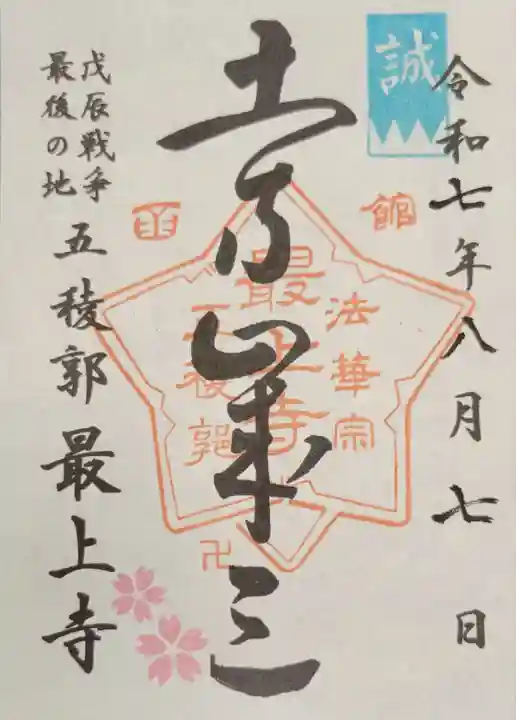 令和七年八月七日
誠
土方歳三
函館
法華宗
最上寺
五稜郭
卍
戊辰戦争
最後の地
五稜郭 最上寺